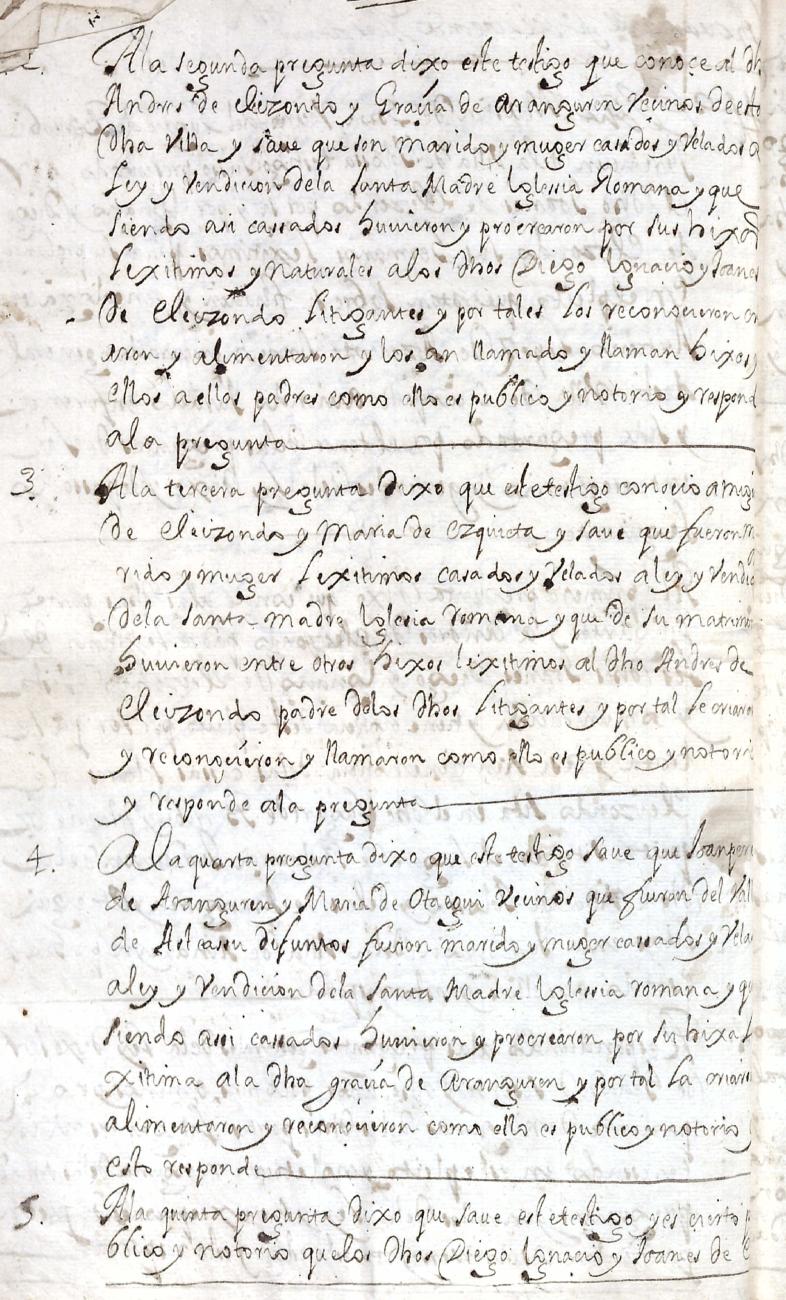 2. Ala segunda pregunta dixo este testigo que conoce al dh
Andres de Eleizondo y Graçia de aranguren Veçinos de esta
dha Villa y saue que son marido y muger casados y Velados a
Ley y Vendicion dela Santa Madre Iglessia Romana y que
siendo asi cassados huuieron y procrearon por sus hixos
Lexitimos y Naturales alos dhos Diego Ignacio y Joanes
De Eleizondo Litigantes y por tales Los reconocieron cri
aron y alimentaron y los an llamado y llaman hixos y
ellos aellos padres como ello es publico y notorio y respond
ala pregunta
3. Ala tercera pregunta Dixo que este testigo conocio a
De Eleizondo y Maria de Ezquieta y saue que fueron ma
rido y muger Lexitimos casados y Velados a ley y Vendic
Dela santa madre Iglesia romana y que de su matrim
huuieron entre otros hixos lexitimos al dho Andres de
Eleizondo padre delos dhos Litigantes y por tal Le criaron
y reconoçieron y llamaron como ello es publico y notori
y responde ala pregunta
4. Ala quarta pregunta dixo que este testigo saue que Joanperu
de Aranguren y Maria de Otaegui Veçinos que fueron del Vall
de Asteasu difuntos fueron marido y muger cassados y Vela
a ley y Vendicion dela santa Madre Iglessia romana y que
siendo assi cassados huuieron y procrearon por su hixa L
xitima ala dha graçia de Aranguren y por tal La criaro
alimentaron y reconocieron como ello es publico y notorio y
esto responde
5. Ala quinta pregunta dixo que saue este testigo y es cierto p
blico y notorio que los dhos Diego Ignaçio y Joanes de E